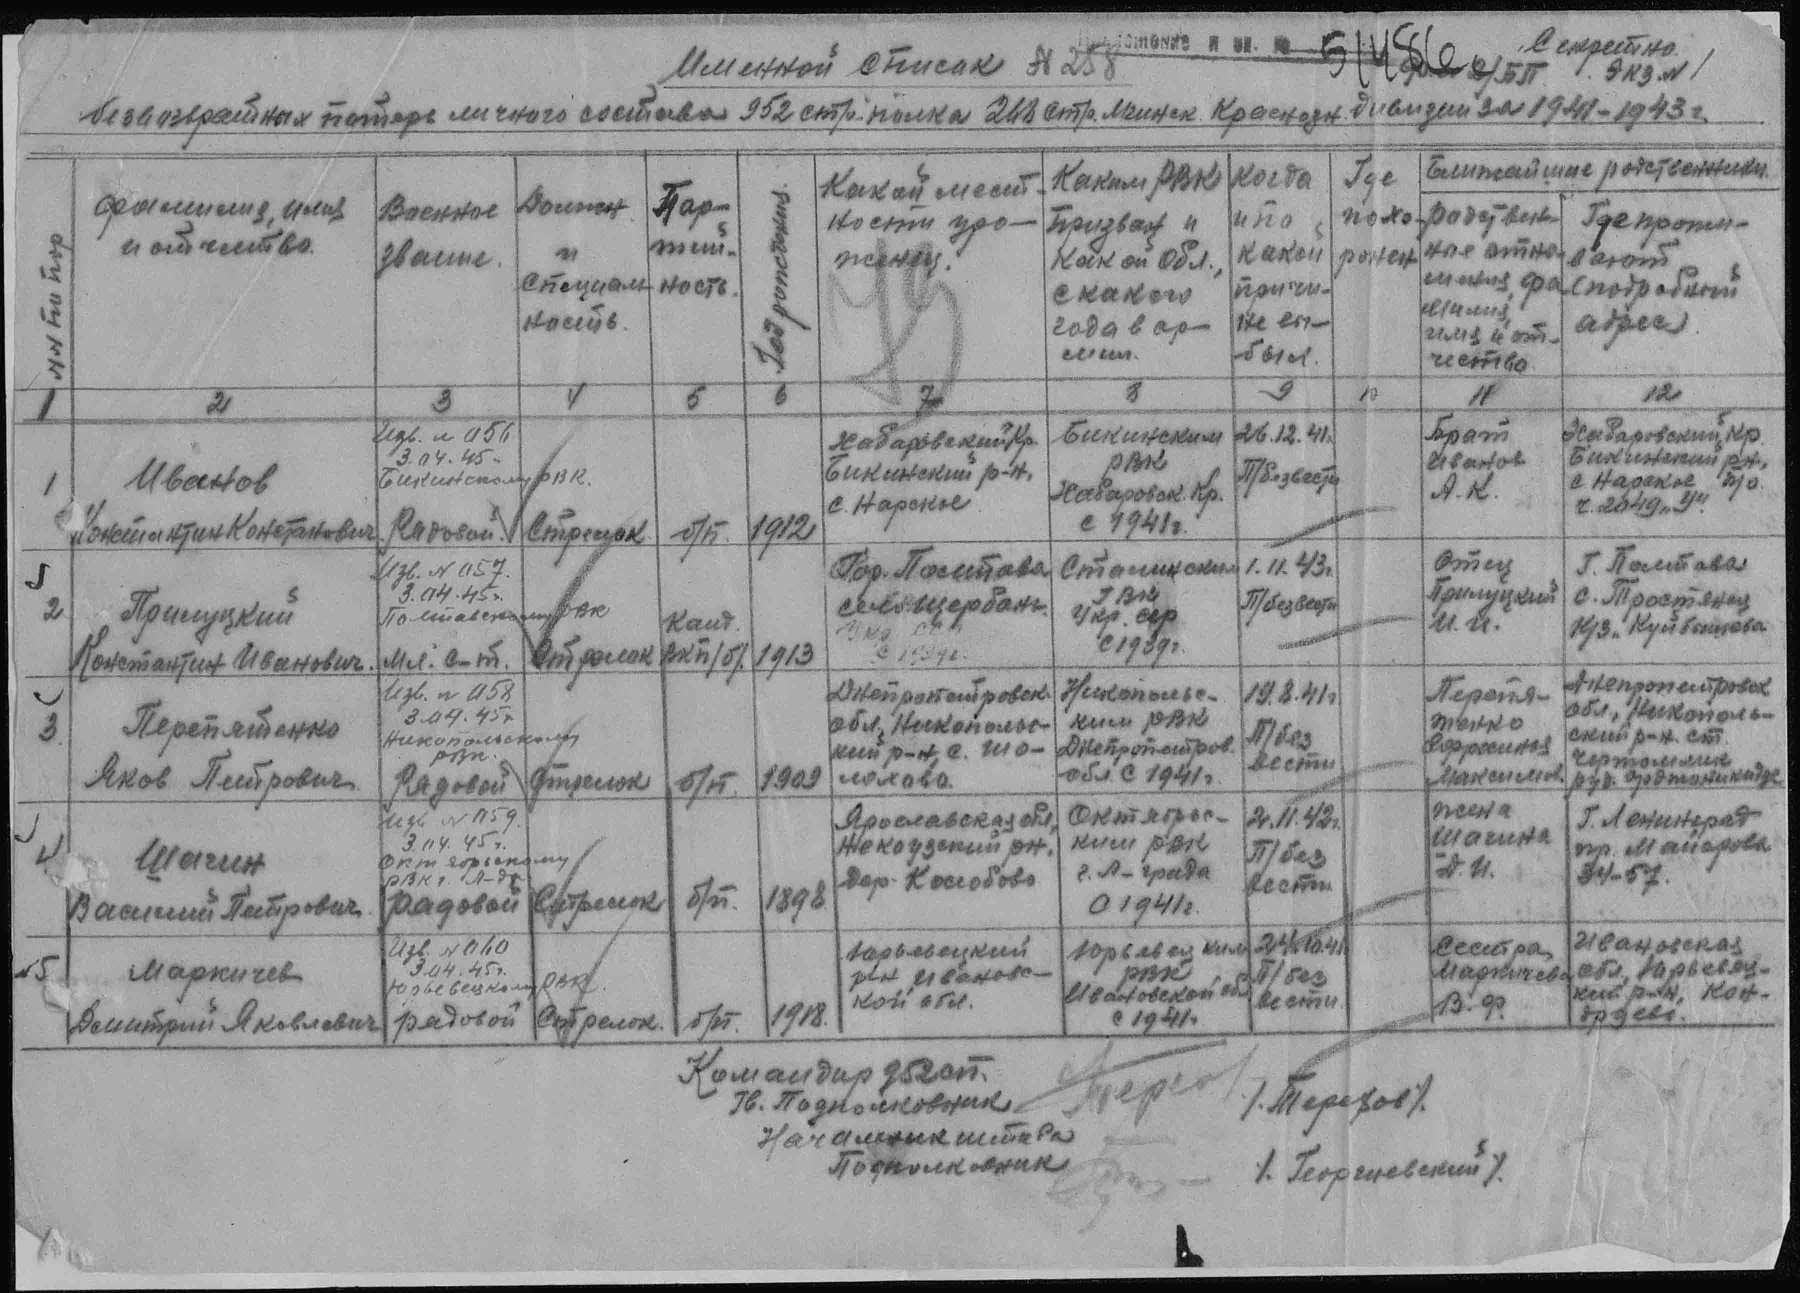 Секретно.
Экз. N 1
Именной список N 258
безвозвратных потерь личного состава 952 стр. полка 268 стр. Мгинск. Краснозн. дивизии за 1941-1943 г.
NN по пор
Фамилия, имя и отчество.
Военное звание.
Должн. и специальность.
Партийность.
Год рождения.
Какой местности уроженец.
Каким РВК призван и какой обл., с какого года в армии.
Когда и по какой причине выбыл.
Где похоронен
Ближайшие родственники
Родственные отношения, фамилия, имя и отчество
Где проживают (подробный адрес).
1 2 3 4 5 6 7 8 9 10 11 12
1
Иванов
Константин Константинович
Изв. N 056
3.04.45г.
Бикинскому РВК.
Рядовой
Стрелок
б/п.
1912
Хабаровский Кр.
Бикинский р-н,
с. Нарское
Бикинским
РВК
Хабаровск. Кр.
с 1941г.
26.12.41г.
П/безвести
Брат
Иванов
А.К.
Хабаровский Кр.
Бикинский р-н,
с Нарское п/о.
2
Прилуцкий
Константин Иванович.
Изв. N 057.
3.04.45г.
Полтавскому РВК
Мл. с-т.
Стрелок
Канд.
ВКП/б/.
1913
Гор. Полтава
село Щербань.
Сталинским
РВК
Укр. сср
с 1939г.
1.11.43г.
П/безвести
Отец
Прилуцкий
И.И.
Г. Полтава
с. Тростянец
к/з. Куйбышева
3
Перепятенко
Яков Петрович.
Изв. N 058
3.04.45г
Никопольскому
РВК.
Рядовой
Стрелок
б/п.
1902
Днепропетровск.
обл, Никопольский р-н, с. Шолохово.
Никопольским РВК
Днепропетров.
обл. с 1941г.
19.8.41г
П/без
вести
Ефросинья
Максимов.
Днепропетровск
обл, Никопольский р-н. ст.
Чертомлик
руд. Орджоникидзе
4
Шагин
Василий Петрович.
Изв. N 059.
3.04.45г.
Октябрьскому
РВК г. Л-да
рядовой
Стрелок
б/п.
1898
Ярославская обл,
Некоузский рн.
дер. Кослобово
Октябрьским РВК
г. Л-града
с 1941г.
2.11.42г.
П/без
вести
жена
Шагина
Д.И.
Г. Ленинград
пр. Майорова
34-57.
5
Маркичев
Дмитрий Яковлевич
Изв. N 060
3.04.45г.
Юрьевецкому РВК.
рядовой
Стрелок.
б/п.
1918.
Юрьевецкий
р-н, Ивановской обл.
Юрьевецким
РВК
Ивановской обл
с 1941г
24.10.41г
П/без
вести.
Сестра
Маркичева
В.Ф.
Ивановская
обл, Юрьевецкий р-н,
Командир 952 сп.
Гв. Подполковник
/. Терехов/.
Начальник штаба
Подполковник
/. Георгиевский/.